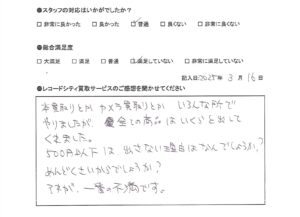 ●スタッフの対応はいかがでしたか?
□ 非常に良かった □ 良かった ☑ 普通 □ 良くない □ 非常に良くない
●総合満足度
□ 大満足 □ 満足 □ 普通 ☑ 満足していない □ 非常に満足していない
記入日 2025年 3月 16日
●レコードシティ買取サービスのご感想を聞かせてください
本買取りとか カメラ買取りとか いろんな所で
やりましたが、全ての商品はいくらと出して
くれました。
500円以下は 出さない理由はなんでしょうか?
めんどくさいからでしょうか?
それが、一番の不満です。